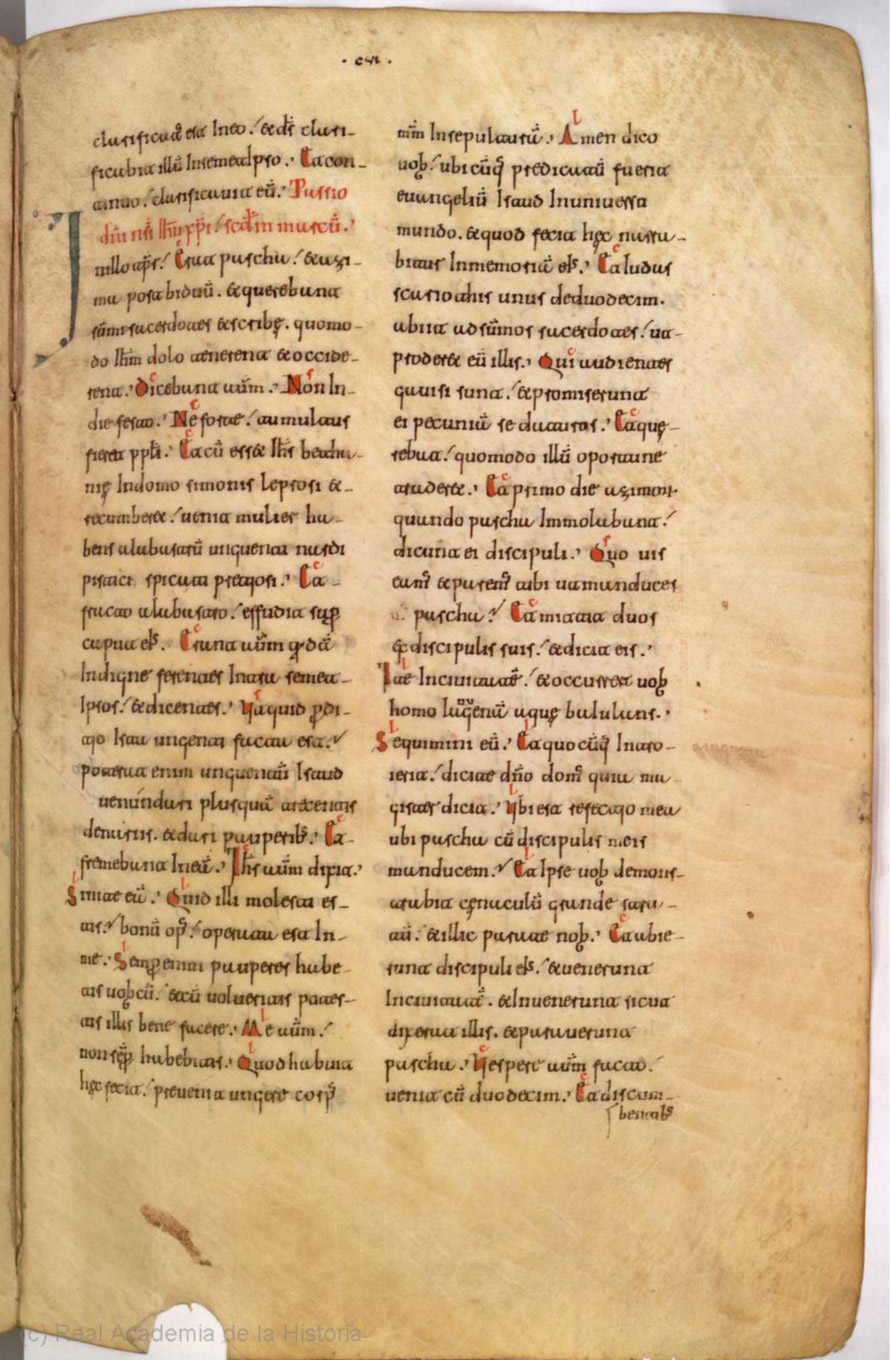 · cvi ·
clarificat᷒ est In eo. / & ds̅ clari-
ficabit illũ In semetIpso. Et con-
tinuo. / clarificavit eũ. Passio
dñi nr̅i Ihũ xp̅i / scđm marcũ.
In illo tp̅r. / Erat pascha. / & azi-
ma post biduũ. & querebant
sũmi sacerdotes & scribę. quomo-
do Ihm̅ dolo tenerent & occide-
rent. Dicebant aũm. Non In
die festo. Ne forte. / tumultus
fieret ppłi. Et cũ ess& Ihs̅ betha-
nię In domo simonis leprosi &-
recumber&. / venit mulier ha-
bens alabastrũ unguenti nardi
pistici spicati pretiosi. Et
fracto alabastro. / effudit sup̱
caput ei᷒. Erant aũm q᷒dã
Indigne ferentes Intra semet-
Ipsos. / & dicentes. Vt quid p̱di-
tio Ista ungenti facta est.
poterat enim unguentũ Istud
venundari plusquã trecentis
denariis. & dari pauperib᷒. Et
fremebant In eã. Ihs̅ aũm dixit.
Sinite eũ. Quid illi molesti es-
tis. bonũ op᷒. / operata est In
me. Semp̱ enim pauperes habe-
tis vobcũ. & cũ volueritis potes-
tis illis bene facere. Me aũm. /
non sẽp̱ habebitis. Quod habuit
hęc fecit. / prevenit ungere corp᷒
mm̅ In sepulturã. Amen dico
vob̅. / ubicũq᷒ predicatũ fuerit
evangeliũ Istud In universa
mundo. & quod fecit hęc narra-
bitur In memoriã ei᷒. Et Iudas
scariothis unus de duodecim.
abiit ad sũmos sacerdotes. / ut
proder& eũ illis. Qui audientes
gavisi sunt. / & promiserunt
ei pecuniã se daturos. Et quę-
rebat. / quomodo illũ oportune
trader&. Et primo die azimor̅
quando pascha Immolabant. /
dicunt ei discipuli. Quo vis
eam᷒ & parem᷒ tibi ut manduces
pascha. Et mittit duos
ex discipulis suis. / & dicit eis.
Ite In civitatẽ. / & occurret vob̅
homo lagenã aquę baiulans.
Sequimini eũ. Et quocũq᷒ Intro-
ierit. / dicite dño dom᷒ quia ma-
gister dicit. Vbi est refectio mea
ubi pascha cũ discipulis meis
manducem. Et Ipse vob̅ demons-
trabit cęnaculũ grande stra-
tũ. / & illic parate nob̅. Et abie-
runt discipuli ei᷒. / & venerunt
In civitatẽ. & Invenerunt sicut
dixerat illis. & paraverunt
pascha. Vespere aũm facto.
venit cũ duodecim. Et discum-
bentib᷒
(c) Real Academia de la Historia